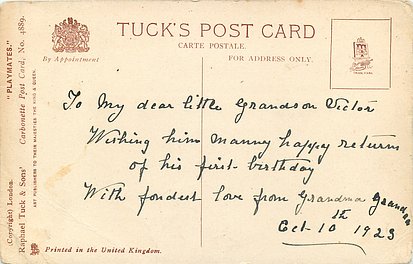 TUCK'S POST CARD
CARTE POSTALE.
By Appointment
FOR ADDRESS ONLY.
TRADE MARK.
To My dear little Grandson Victor
Wishing him manny happy returns
of his first birthday
With fondest love from Grandma Grandpa
Oct 10th 1923
(Copyright) London.
Raphael Tuck & Sons'
"PLAYMATES."
Carbonette Post Card, No. 4889.
ART PUBLISHERS TO THEIR MAJESTIES THE KING & QUEEN.
Printed in the United Kingdom.